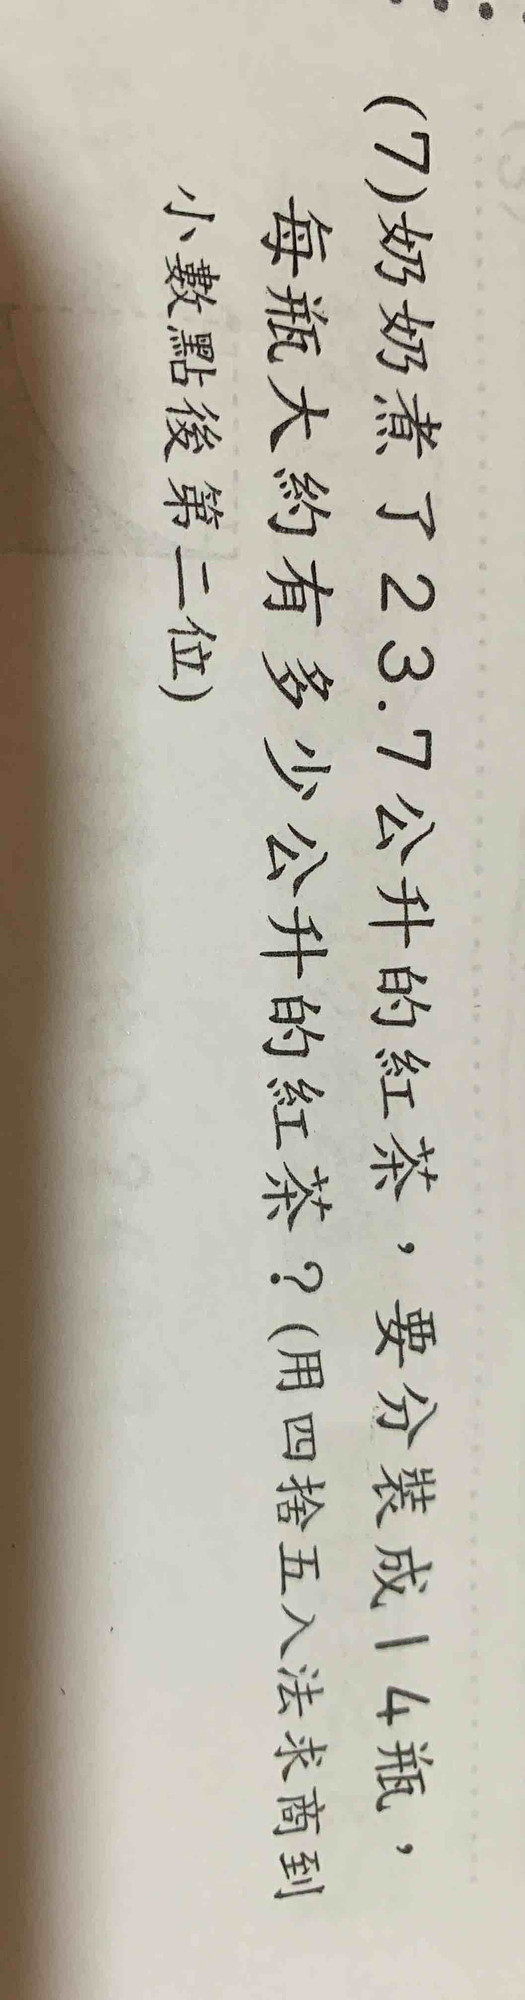 (7)奶奶煮了23.7公升的紅茶，要分裝成14瓶，
每瓶大約有多少公升的紅茶？(用四捨五入法求商到
小數點後第二位)